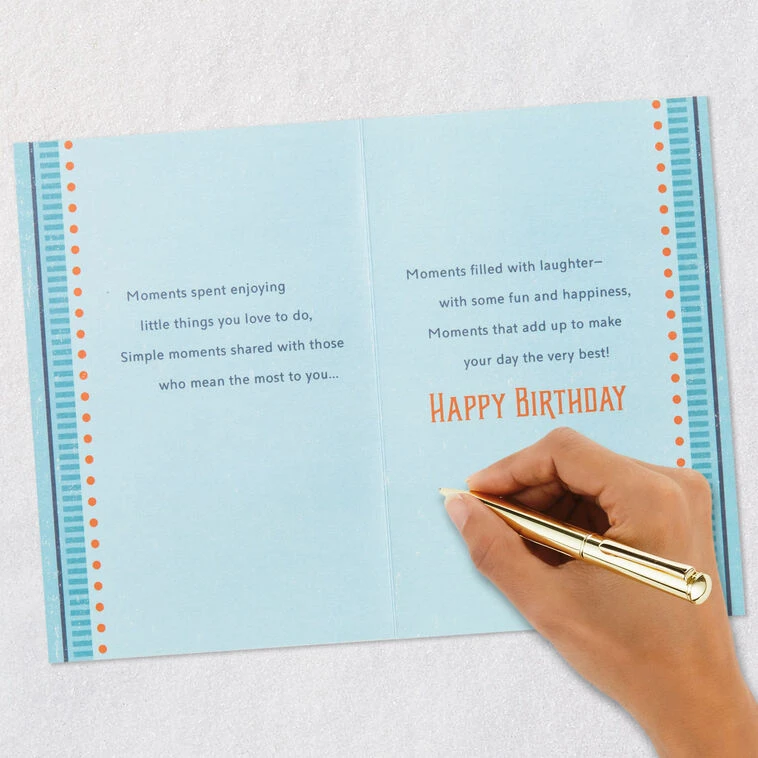 Moments spent enjoying
little things you love to do,
Simple moments shared with those
who mean the most to you...
Moments filled with laughter–
with some fun and happiness,
Moments that add up to make
your day the very best!
HAPPY BIRTHDAY